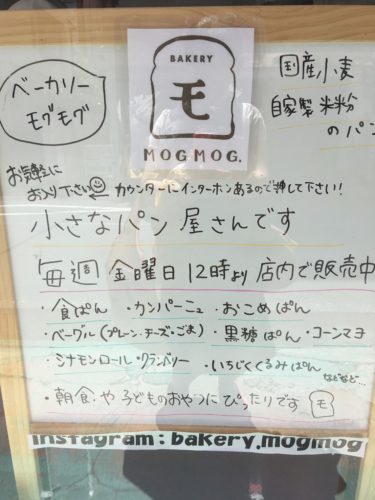 BAKERY
モ
MOGMOG.
ベーカリー
モグモグ
国産小麦
自家製米粉
のパン
お気軽に
お入り下さい
カウンターにインターホンあるので押して下さい!
小さなパン屋さんです
毎週 金曜日 12時より 店内で販売中
・食ぱん ・カンパーニュ ・おこめぱん
・ベーグル(プレーン・チーズ・ごま) ・黒糖ぱん ・コーンマヨ
・シナモンロール ・クランベリー ・いちじくくるみぱん
などなど…
・朝食や子どものおやつにぴったりです モ
instagram : bakery.mogmog